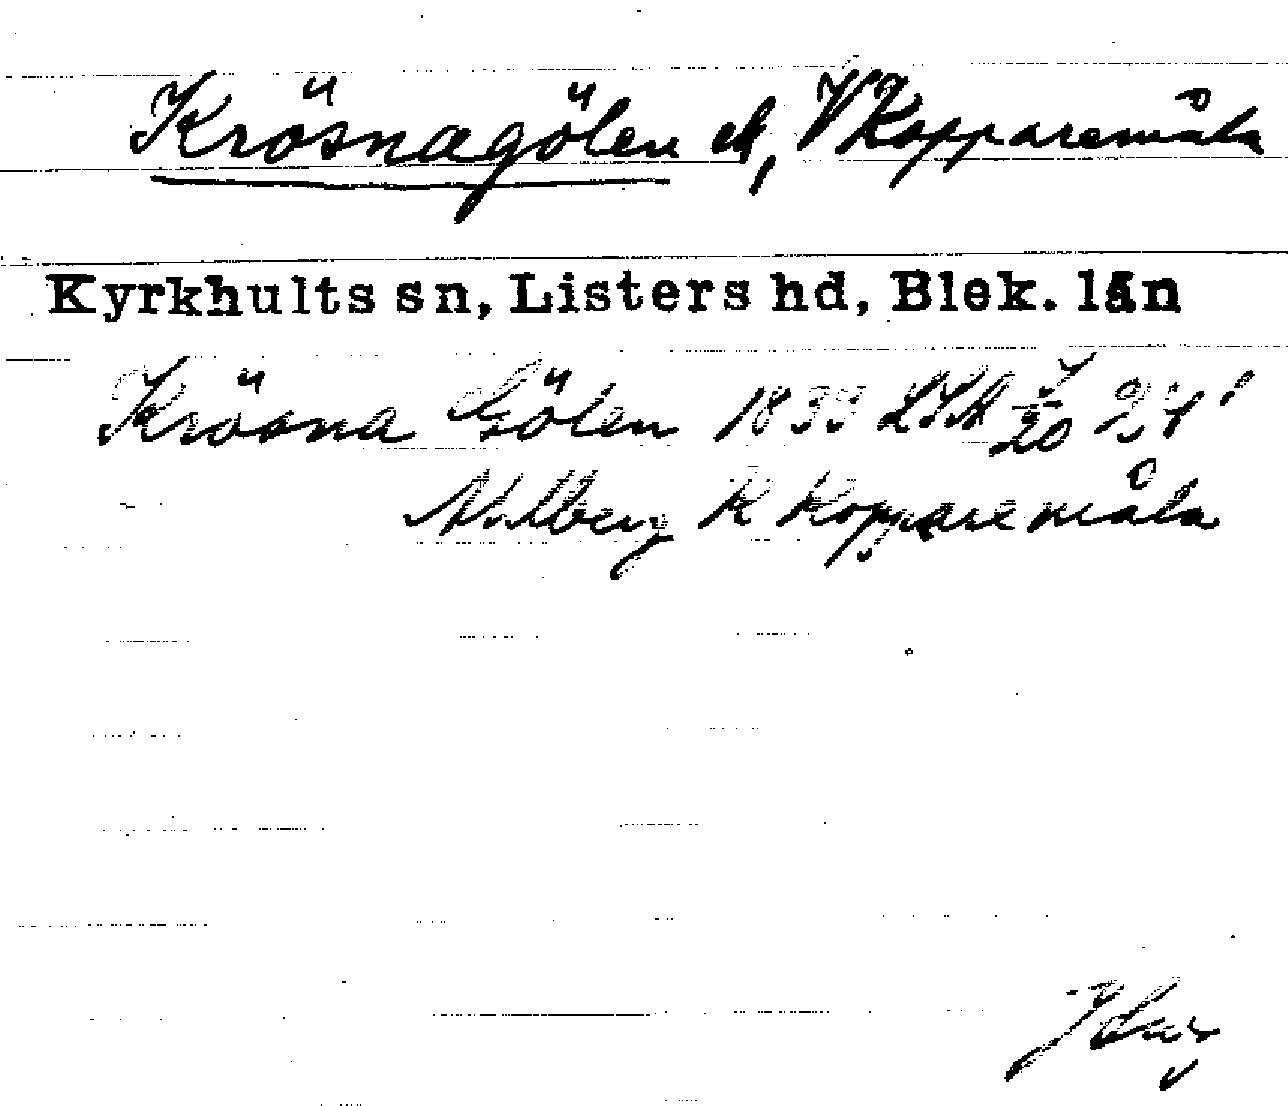 Krösnagölen ek, V Kopparemåla
Kyrkhults sn, Listers hd, Blek. län
Krösna Gölen 1833 LSA 7/20 24'
R Kopparemåla